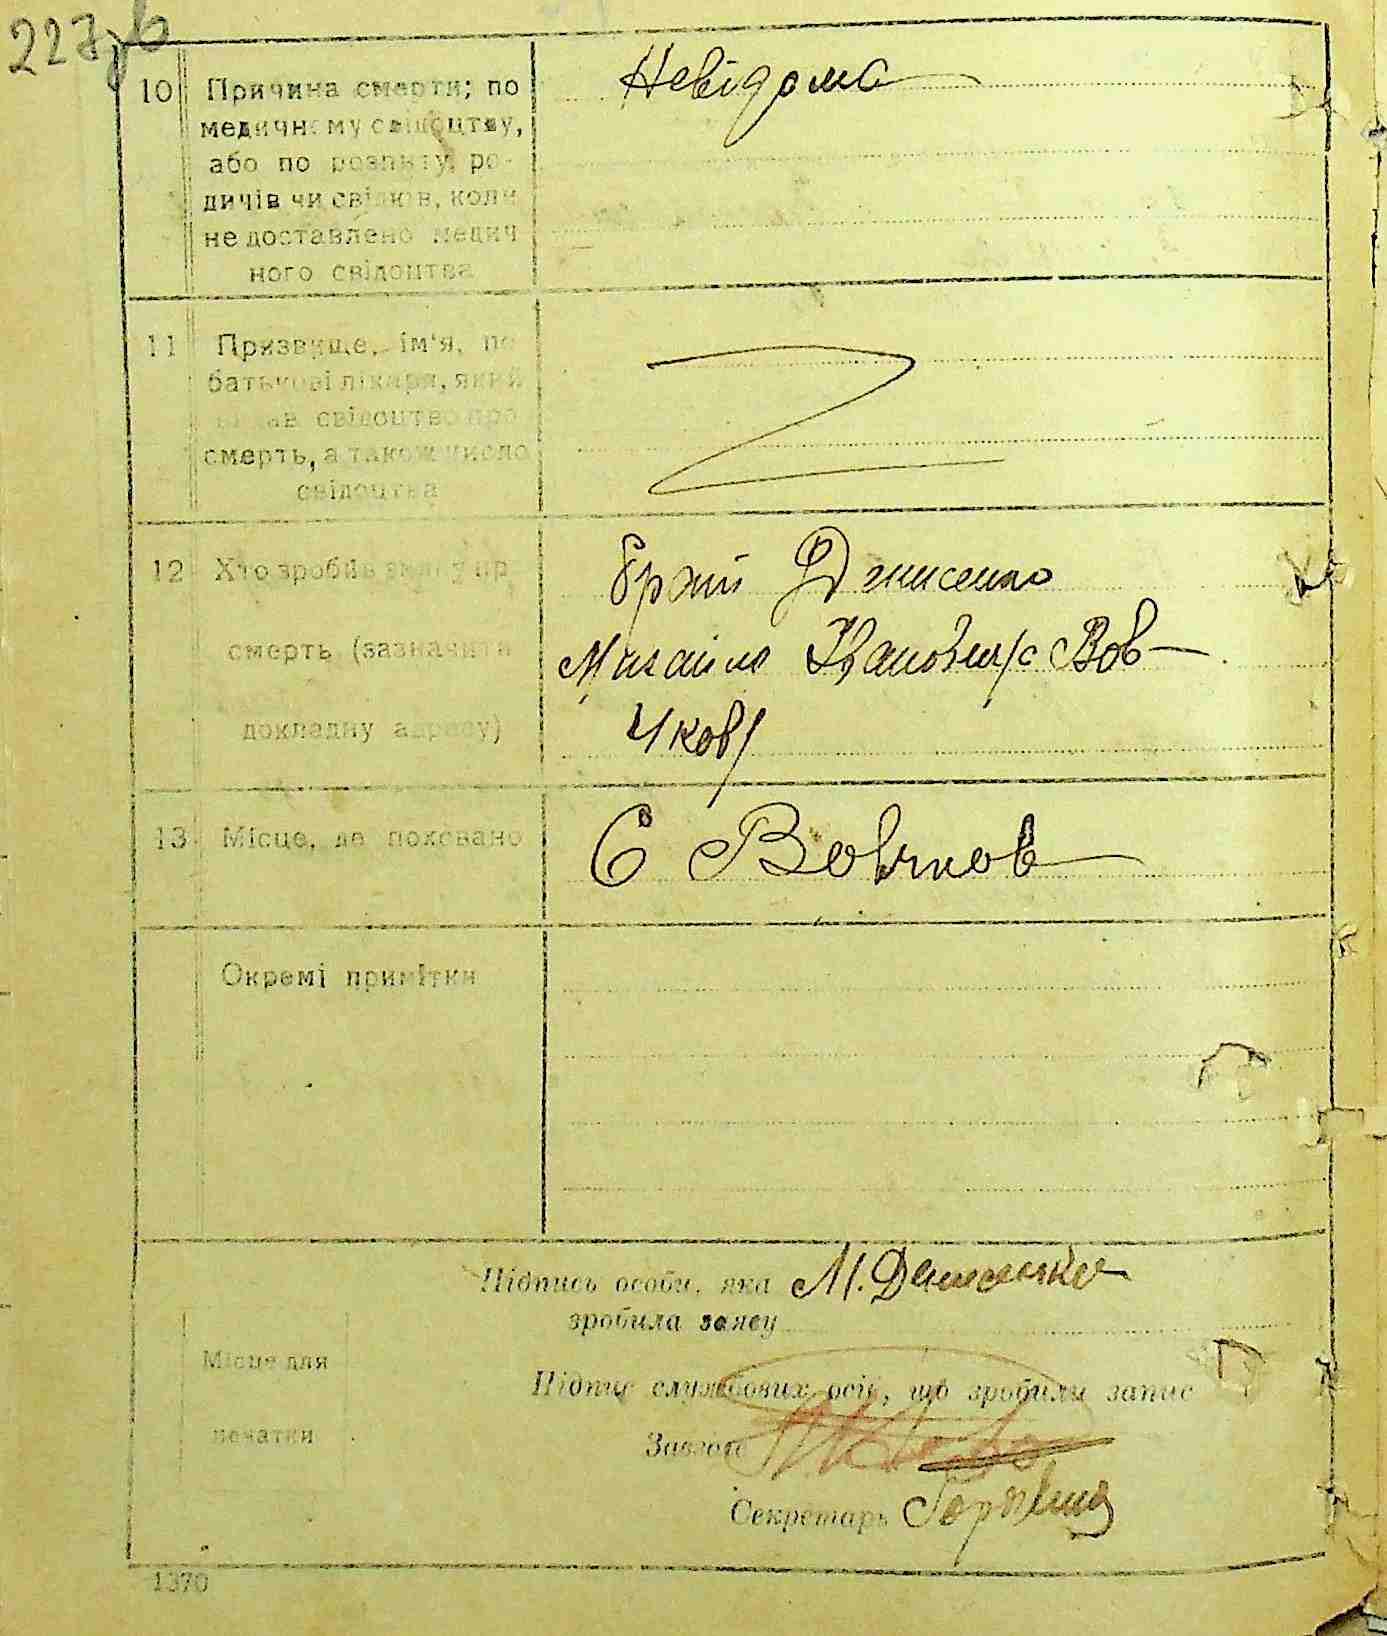 227зв
10 Причина смерти; по
медичному свідоцтву,
або по розпиту, ро-
дичів чи свідків, коли
не доставлено медич
ного свідоцтва
Невідома
11 Призвище, ім'я, по
батькові лікаря, який
видав свідоцтво про
смерть, а також число
свідоцтва
12 Хто зробив заяву пр
смерть (зазначити
докладну адресу)
Денисенко
Михайло Іванович с Вов-
чков
13 Місце, де поховано
С Вовчков
Окремі примітки
Підпись особи, яка М. Денисенко
зробила заяву
Місце для
печатки
Підпис службових осіб, що зробили запис
Завзагс
Секретарь
1370